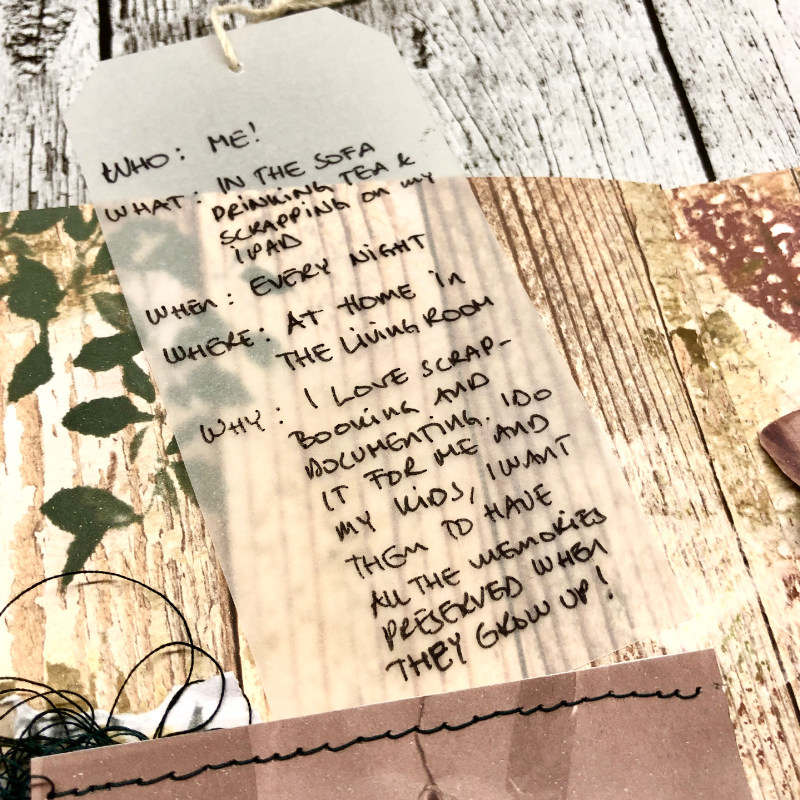 WHO: ME!
WHAT: IN THE SOFA
DRINKING TEA &
SCRAPPING ON MY
IPAD
WHEN: EVERY NIGHT
WHERE: AT HOME IN
THE LIVING ROOM
WHY: I LOVE SCRAP-
BOOKING AND
DOCUMENTING. I DO
IT FOR ME AND
MY KIDS, I WANT
THEM TO HAVE
ALL THE MEMORIES
PRESERVED WHEN
THEY GROW UP!